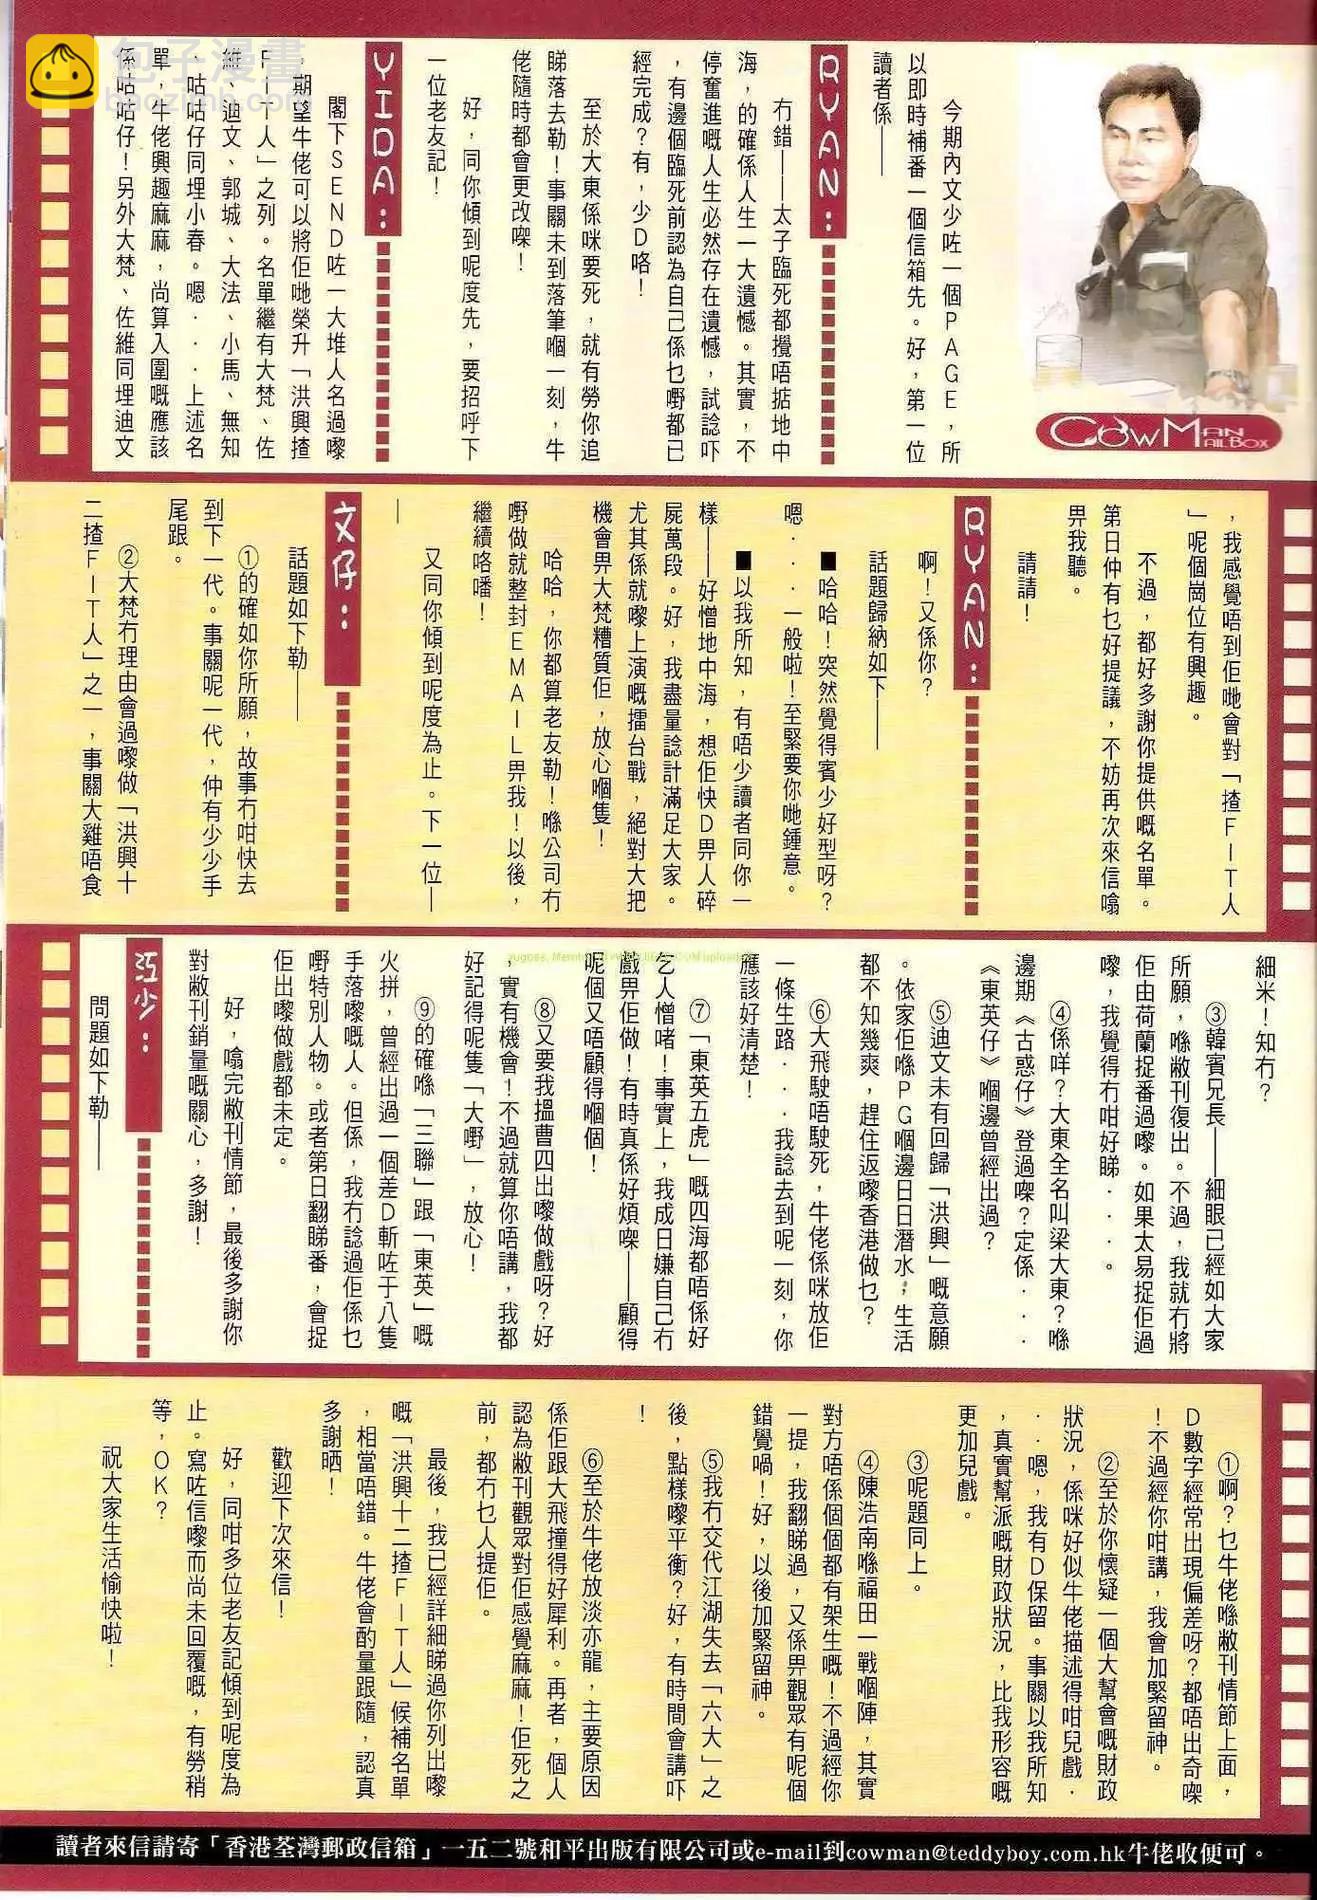 包子漫畫
baozimh.com
COWMAN MAILBOX
今期內文少咗一個PAGE，所
以即時補番一個信箱先。好，第一位
讀者係——
RYAN：
冇錯——太子臨死都攪唔掂地中
海，的確係人生一大遺憾。其實，不
停奮進嘅人生必然存在遺憾，試諗吓
，有邊個臨死前認為自己係乜嘢都已
經完成？有，少D咯！
至於大東係咪要死，就有勞你追
睇落去勒！事關未到落筆嗰一刻，牛
佬隨時都會更改㗎！
好，同你傾到呢度先，要招呼下
一位老友記！
YIDA：
閣下SEND咗一大堆人名過嚟
，期望牛佬可以將佢哋榮升「洪興揸
FIT人」之列。名單繼有大梵、佐
維、迪文、郭城、大法、小馬、無知
、咕咕仔同埋小春。嗯．．．上述名
單，牛佬興趣麻麻，尚算入圍嘅應該
係咕咕仔！另外大梵、佐維同埋迪文
，我感覺唔到佢哋會對「揸FIT人
」呢個崗位有興趣。
不過，都好多謝你提供嘅名單。
第日仲有乜好提議，不妨再次來信噏
畀我聽。
請請！
RYAN：
啊！又係你？
話題歸納如下——
■哈哈！突然覺得賓少好型呀？
嗯．．．一般啦！至緊要你哋鍾意。
■以我所知，有唔少讀者同你一
樣——好憎地中海，想佢快D畀人碎
屍萬段。好，我盡量諗計滿足大家。
尤其係就嚟上演嘅擂台戰，絕對大把
機會畀大梵糟質佢，放心嗰隻！
哈哈，你都算老友勒！喺公司冇
嘢做就整封EMAIL畀我！以後，
繼續咯噃！
又同你傾到呢度為止。下一位—
—
文仔：
話題如下勒——
①的確如你所願，故事冇咁快去
到下一代。事關呢一代，仲有少少手
尾跟。
②大梵冇理由會過嚟做「洪興十
二揸FIT人」之一，事關大雞唔食
細米！知冇？
③韓賓兄長——細眼已經如大家
所願，喺敝刊復出。不過，我就冇將
佢由荷蘭捉番過嚟。如果太易捉佢過
嚟，我覺得冇咁好睇．．．。
④係咩？大東全名叫梁大東？喺
邊期《古惑仔》登過㗎？定係．．．
《東英仔》嗰邊曾經出過？
⑤迪文未有回歸「洪興」嘅意願
。依家佢喺PG嗰邊日日潛水，生活
都不知幾爽，趕住返嚟香港做乜？
⑥大飛駛唔駛死，牛佬係咪放佢
一條生路．．．我諗去到呢一刻，你
應該好清楚！
⑦「東英五虎」嘅四海都唔係好
乞人憎啫！事實上，我成日嫌自己冇
戲畀佢做！有時真係好煩㗎——顧得
呢個又唔顧得嗰個！
⑧又要我搵曹四出嚟做戲呀？好
，實有機會！不過就算你唔講，我都
好記得呢隻「大嘢」，放心！
⑨的確喺「三聯」跟「東英」嘅
火拼，曾經出過一個差D斬咗于八隻
手落嚟嘅人。但係，我冇諗過佢係乜
嘢特別人物。或者第日翻睇番，會捉
佢出嚟做戲都未定。
好，噏完敝刊情節，最後多謝你
對敝刊銷量嘅關心，多謝！
江少：
問題如下勒——
①啊？乜牛佬喺敝刊情節上面，
D數字經常出現偏差呀？都唔出奇㗎
！不過經你咁講，我會加緊留神。
②至於你懷疑一個大幫會嘅財政
狀況，係咪好似牛佬描述得咁兒戲．
．．嗯，我有D保留。事關以我所知
，真實幫派嘅財政狀況，比我形容嘅
更加兒戲。
③呢題同上。
④陳浩南喺福田一戰嗰陣，其實
對方唔係個個都有架生嘅！不過經你
一提，我翻睇過，又係畀觀眾有呢個
錯覺喎！好，以後加緊留神。
⑤我冇交代江湖失去「六大」之
後，點樣嚟平衡？好，有時間會講吓
！
⑥至於牛佬放淡亦龍，主要原因
係佢跟大飛撞得好犀利。再者，個人
認為敝刊觀眾對佢感覺麻麻！佢死之
前，都冇乜人提佢。
最後，我已經詳細睇過你列出嚟
嘅「洪興十二揸FIT人」候補名單
，相當唔錯。牛佬會酌量跟隨，認真
多謝晒！
歡迎下次來信！
好，同咁多位老友記傾到呢度為
止。寫咗信嚟而尚未回覆嘅，有勞稍
等，OK？
祝大家生活愉快啦！
讀者來信請寄「香港荃灣郵政信箱」一五二號和平出版有限公司或e-mail到cowman@teddyboy.com.hk牛佬收便可。